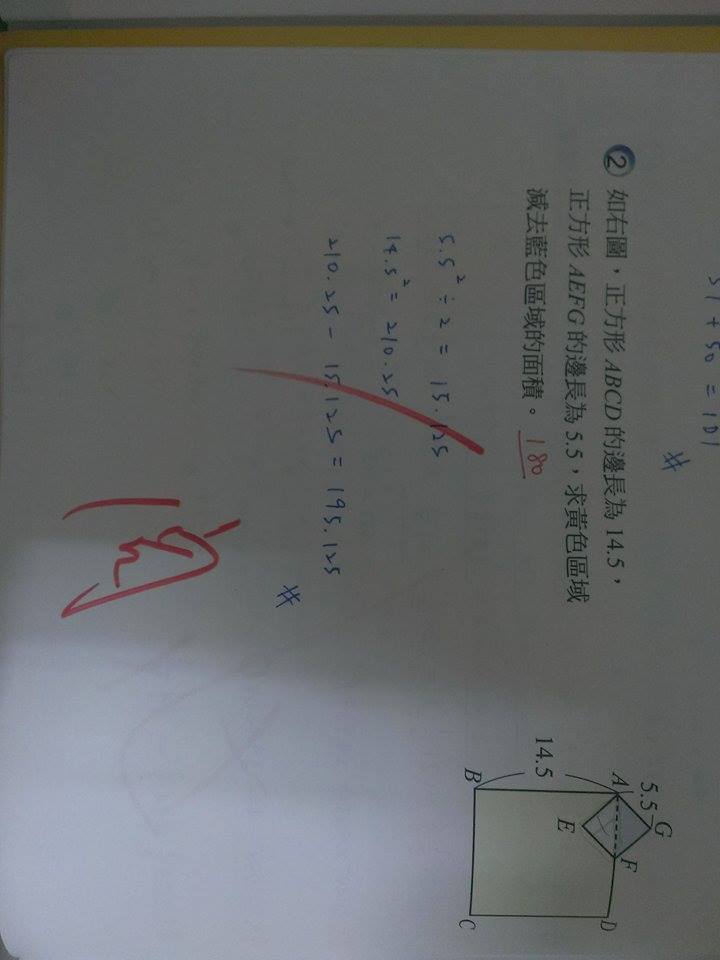 51 + 50 = 101
#
② 如右圖，正方形 ABCD 的邊長為 14.5，
正方形 AEFG 的邊長為 5.5，求黃色區域
減去藍色區域的面積。180
5.5² ÷ 2 = 15.125
14.5² = 210.25
210.25 - 15.125 = 195.125
#
5.5
G
A
F
D
E
14.5
B
C